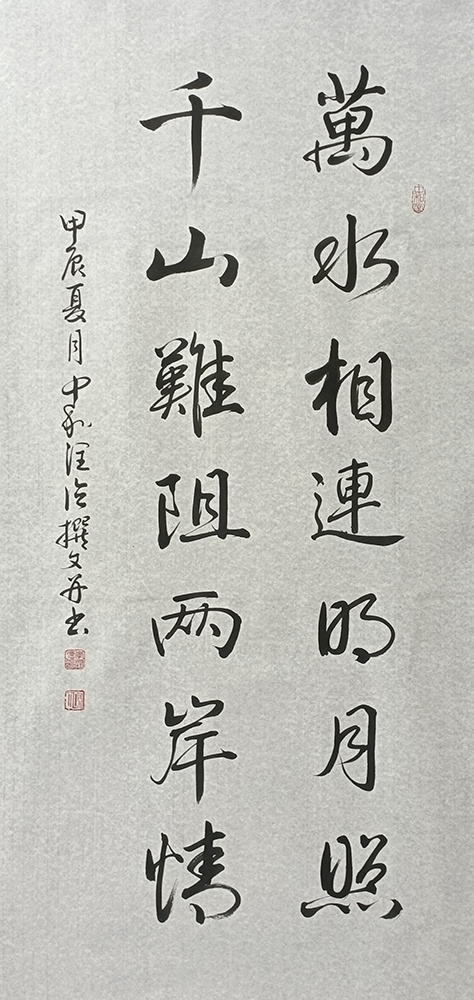 萬水相連明月照
千山難阻两岸情
甲辰夏月中和润泛撰文并书